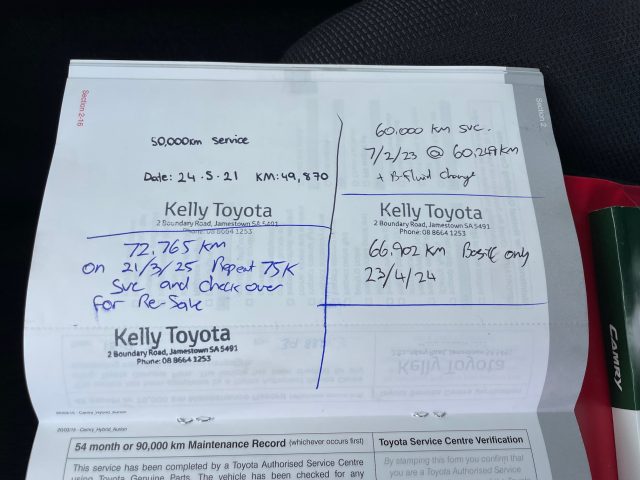 Section 2-16
50,000km service
Date: 24.5.21 KM:49,870
Kelly Toyota
2 Boundary Road, Jamestown SA 5491
Phone: 08 8664 1253
72,765 KM
on 21/3/25 Repeat 75K
Svc and check over
for Re-Sale
Kelly Toyota
2 Boundary Road, Jamestown SA 5491
Phone: 08 8664 1253
Section 2
60,000 km svc.
7/2/23 @ 60,249KM
+ B-Fluid change
Kelly Toyota
2 Boundary Road, Jamestown SA 5491
Phone: 08 8664 1253
66,902 KM Basic only
23/4/24
CAMRY
54 month or 90,000 km Maintenance Record (whichever occurs first)
This service has been completed by a Toyota Authorised Service Centre
using Toyota Genuine Parts. The vehicle has been checked for any
Toyota Service Centre Verification
By stamping this form you confirm that
you are a Toyota Authorised Service